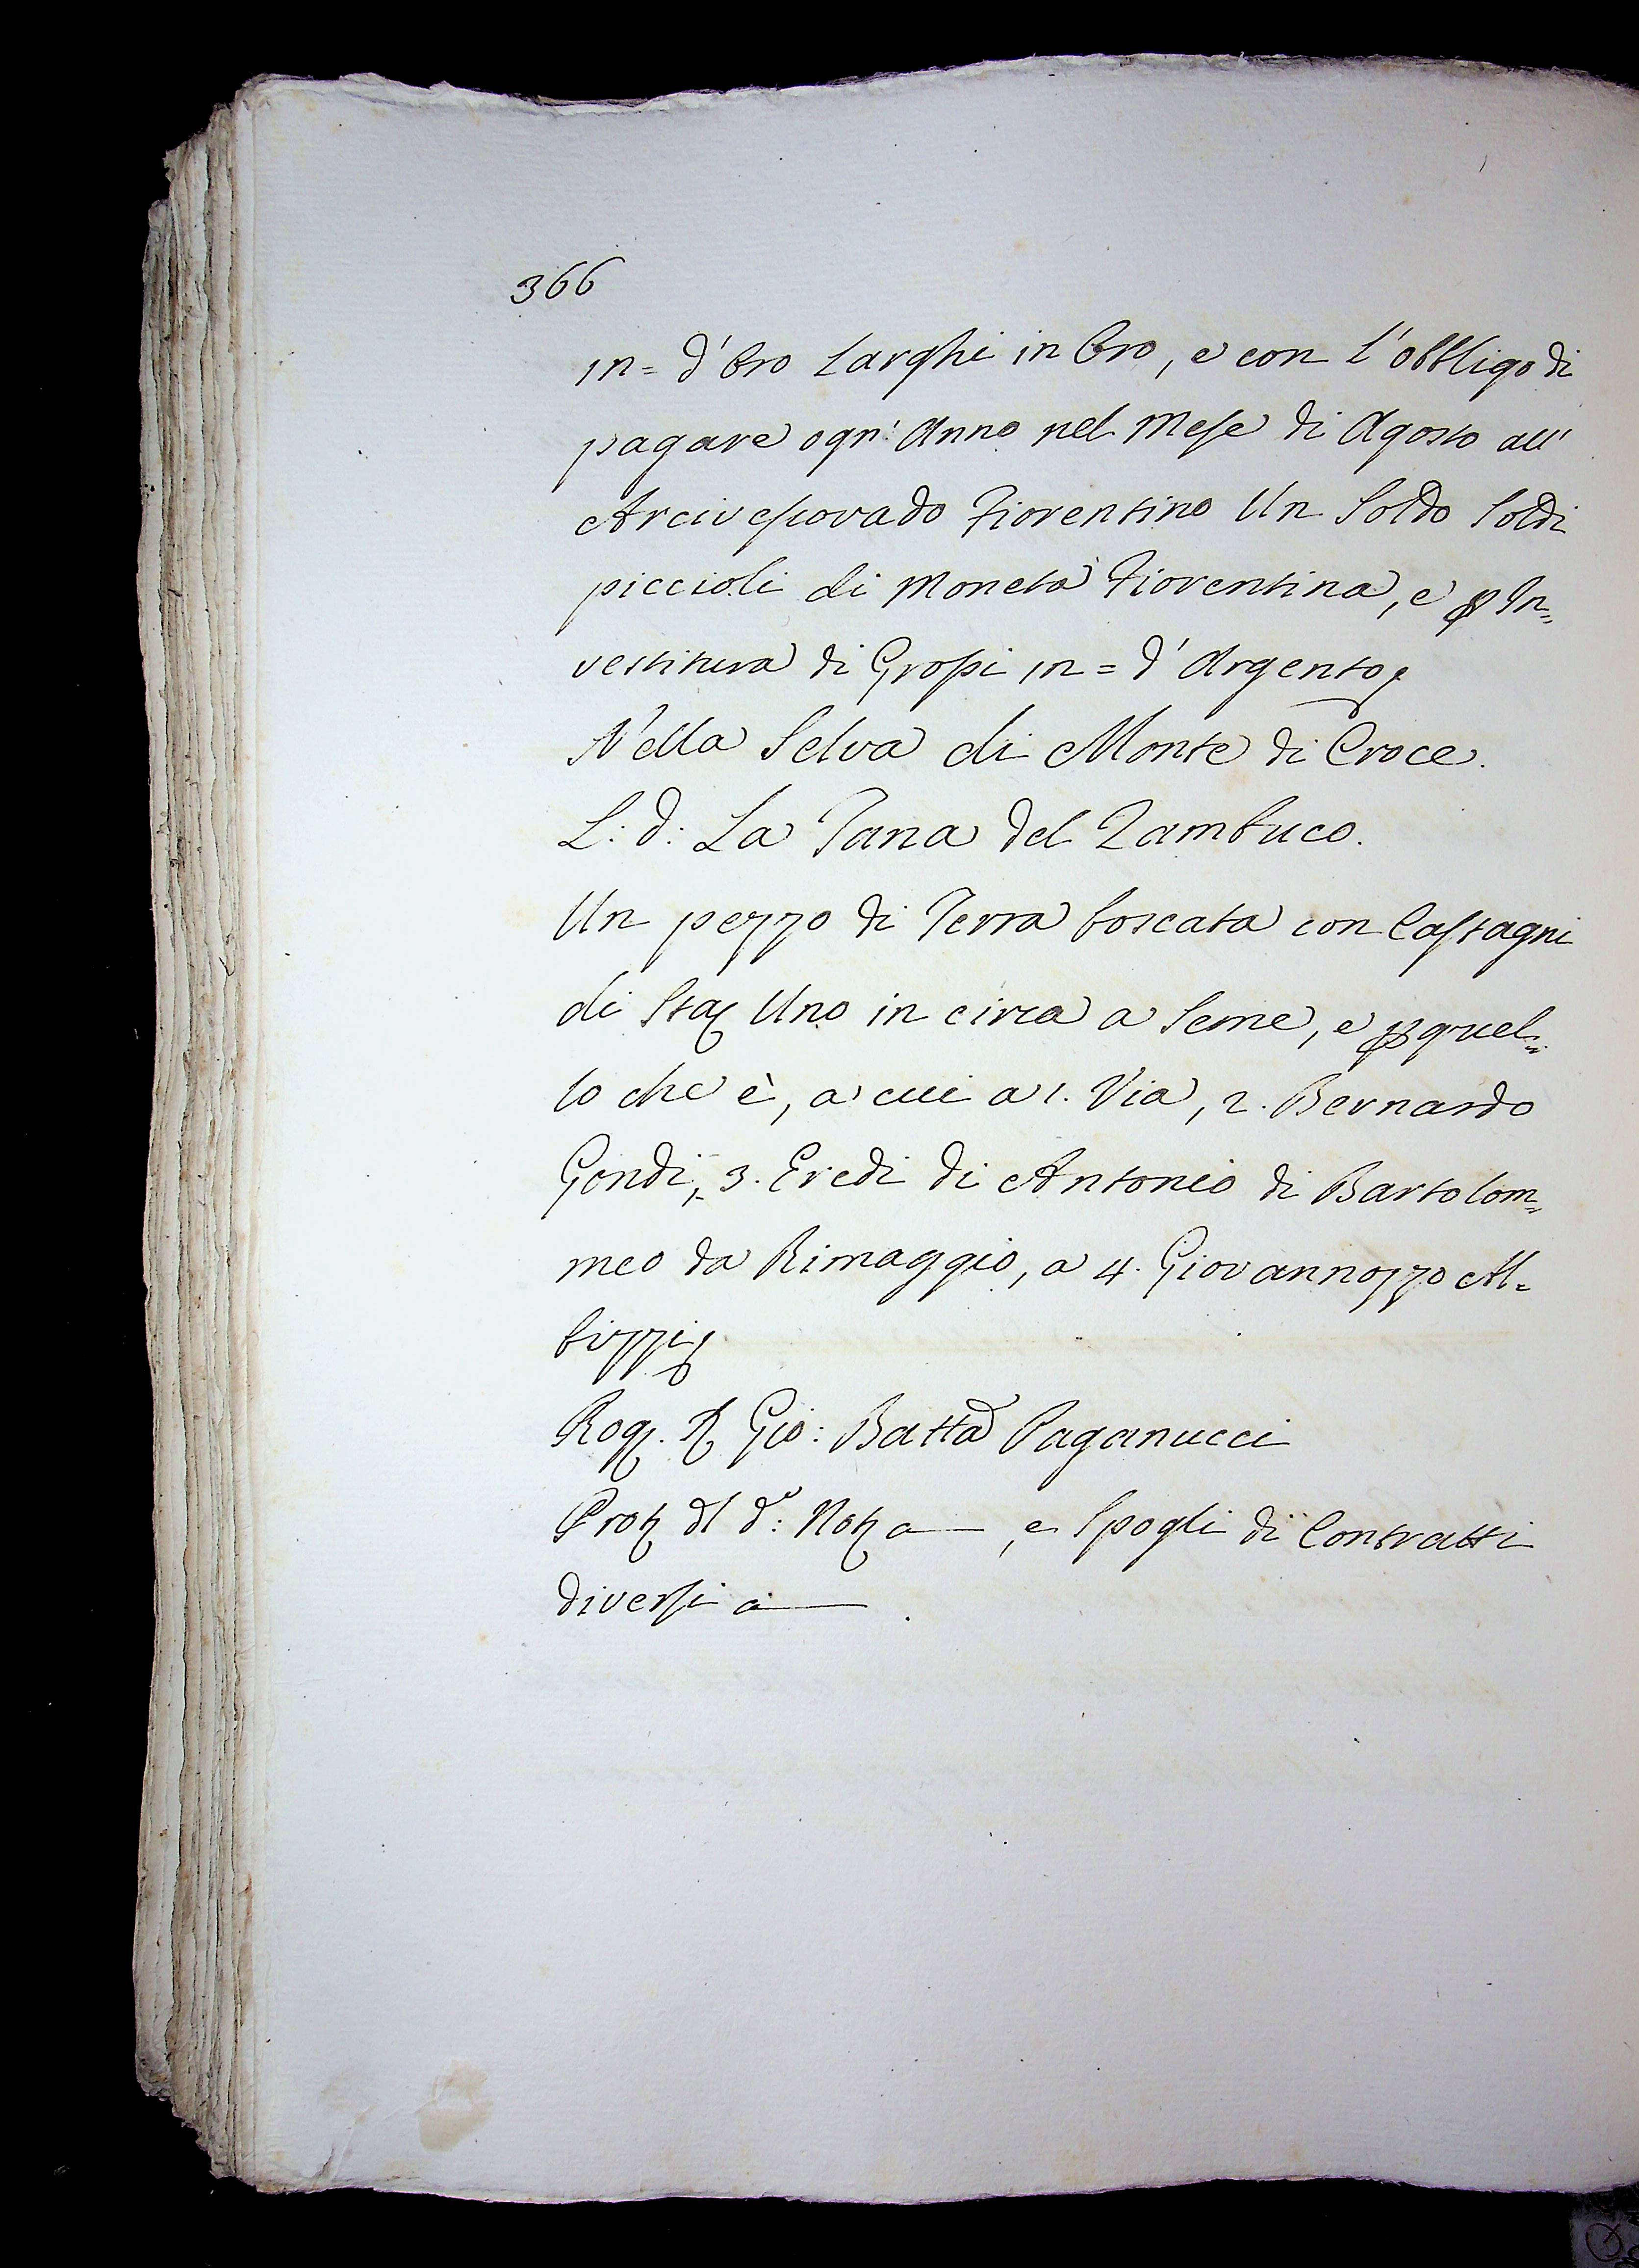 366
in= d'Oro Larghi in Oro, e con l'obbligo di
pagare ogn'Anno nel Mese di Agosto all'
Arcivescovado Fiorentino Un Soldo Soldi
piccioli di Moneta Fiorentina, e p In=
vestitura di Grossi in= d'Argento
Nella Selva di Monte di Croce.
L: d: La Tana del Zambuco.
Un pezzo di Terra boscata con Castagni
di Sta Uno in circa a Seme, e p quel=
lo che è, a cui a 1. Via, 2. Bernardo
Gondi, 3. Eredi di Antonio di Bartolom=
meo da Rimaggio, a 4. Giovannozzo Al=
bizzi
Rog. Gio: Batta Paganucci
Prot dl d.º: Not a — , e Spogli di Contratti
diversi a — .